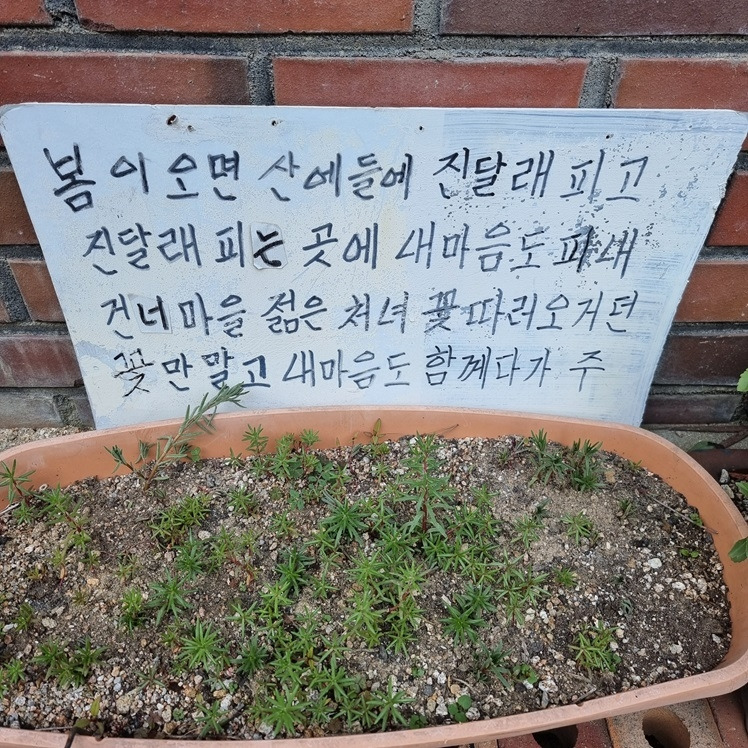 봄이오면 산에들에 진달래 피고
진달래 피는 곳에 내마음도 피네
건너마을 젊은 처녀 꽃따러오거던
꽃만말고 내마음도 함께다가 주